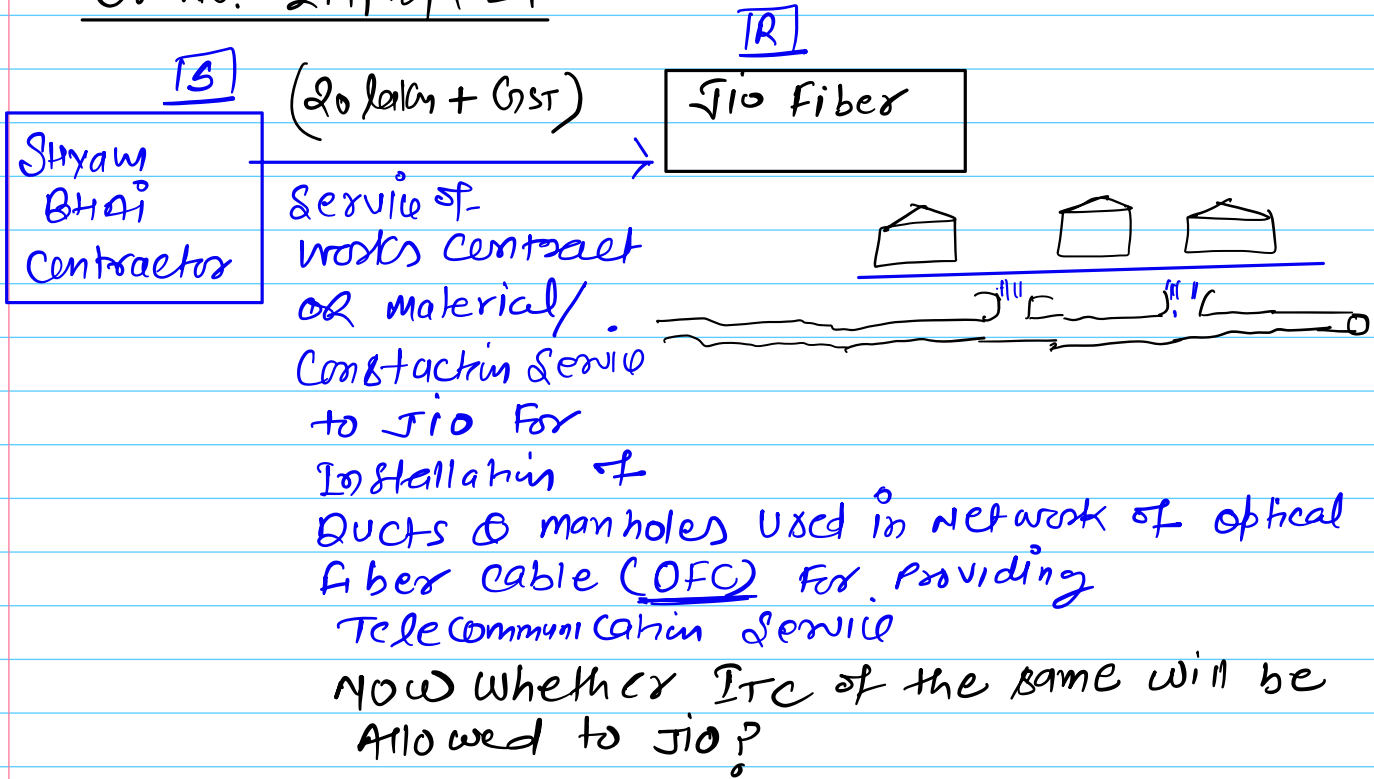 S
(20 lakh + GST)
R
Jio Fiber
SHyam
BHAi
Contractor
Service of
works contract
OR material/
Constaction Service
to Jio For
Installation of
Ducts & manholes used in Network of optical
fiber cable (OFC) For Providing
Telecommunication Service
Now whether ITC of the same will be
Allowed to Jio?